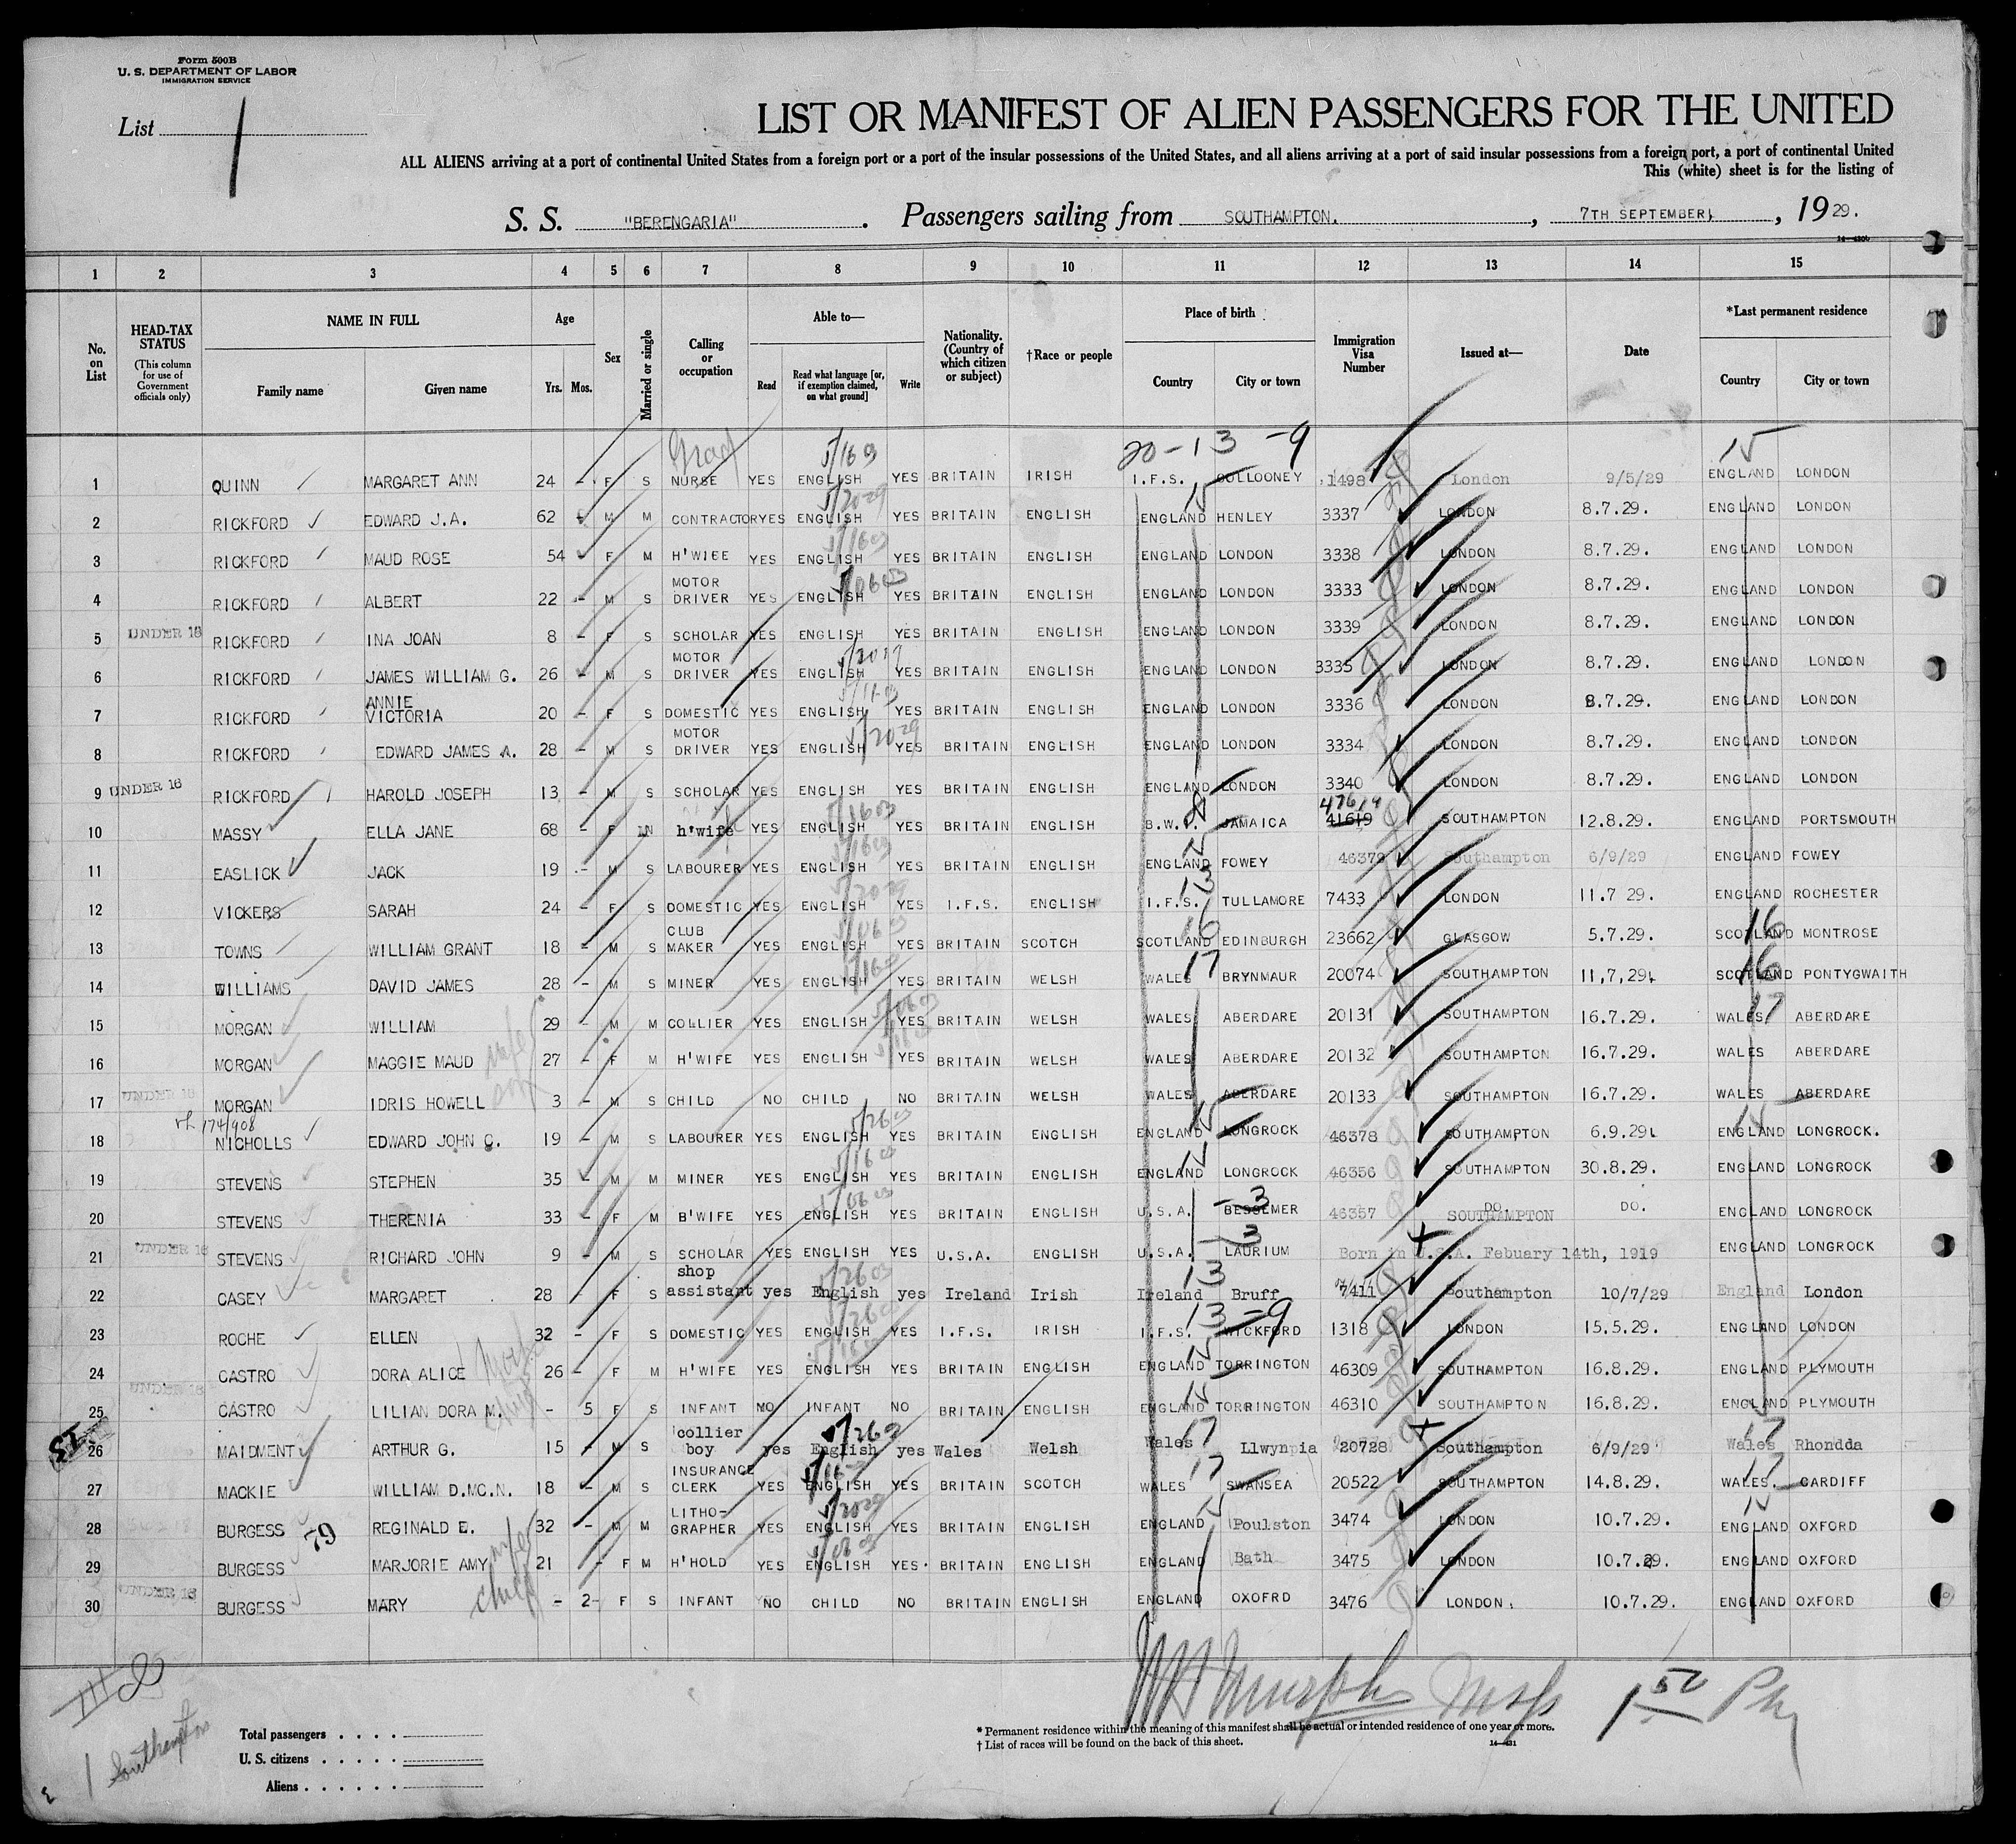 Form 500B
U. S. DEPARTMENT OF LABOR
IMMIGRATION SERVICE
List 1
LIST OR MANIFEST OF ALIEN PASSENGERS FOR THE UNITED
ALL ALIENS arriving at a port of continental United States from a foreign port or a port of the insular possessions of the United States, and all aliens arriving at a port of said insular possessions from a foreign port, a port of continental United
This (white) sheet is for the listing of
S. S. "BERENGARIA". Passengers sailing from SOUTHAMPTON. , 7TH SEPTEMBER, , 1929.
1 2 3 4 5 6 7 8 9 10 11 12 13 14 15
No. on List
HEAD-TAX STATUS
(This column for use of Government officials only)
NAME IN FULL
Family name
Given name
Age
Yrs. Mos.
Sex
Married or single
Calling or occupation
Able to—
Read
Read what language [or, if exemption claimed, on what ground]
Write
Nationality. (Country of which citizen or subject)
†Race or people
Place of birth
Country
City or town
Immigration Visa Number
Issued at—
Date
*Last permanent residence
Country
City or town
Grad 20-13-9 15
1 QUINN MARGARET ANN 24 - F S NURSE YES ENGLISH YES BRITAIN IRISH I.F.S. COLLOONEY 1498 London 9/5/29 ENGLAND LONDON
2 RICKFORD EDWARD J.A. 62 M M CONTRACTOR YES ENGLISH YES BRITAIN ENGLISH ENGLAND HENLEY 3337 LONDON 8.7.29. ENGLAND LONDON
3 RICKFORD MAUD ROSE 54 F M H'WIFE YES ENGLISH YES BRITAIN ENGLISH ENGLAND LONDON 3338 LONDON 8.7.29. ENGLAND LONDON
4 RICKFORD ALBERT 22 - M S MOTOR DRIVER YES ENGLISH YES BRITAIN ENGLISH ENGLAND LONDON 3333 LONDON 8.7.29. ENGLAND LONDON
5 UNDER 16 RICKFORD INA JOAN 8 - F S SCHOLAR YES ENGLISH YES BRITAIN ENGLISH ENGLAND LONDON 3339 LONDON 8.7.29. ENGLAND LONDON
6 RICKFORD JAMES WILLIAM G. 26 - M S MOTOR DRIVER YES ENGLISH YES BRITAIN ENGLISH ENGLAND LONDON 3335 LONDON 8.7.29. ENGLAND LONDON
7 RICKFORD ANNIE VICTORIA 20 - F S DOMESTIC YES ENGLISH YES BRITAIN ENGLISH ENGLAND LONDON 3336 LONDON 8.7.29. ENGLAND LONDON
8 RICKFORD EDWARD JAMES A. 28 - M S MOTOR DRIVER YES ENGLISH YES BRITAIN ENGLISH ENGLAND LONDON 3334 LONDON 8.7.29. ENGLAND LONDON
9 UNDER 16 RICKFORD HAROLD JOSEPH 13 - M S SCHOLAR YES ENGLISH YES BRITAIN ENGLISH ENGLAND LONDON 3340 LONDON 8.7.29. ENGLAND LONDON
10 MASSY ELLA JANE 68 - F h'wife YES ENGLISH YES BRITAIN ENGLISH B.W.I. JAMAICA 47619 41619 SOUTHAMPTON 12.8.29. ENGLAND PORTSMOUTH
11 EASLICK JACK 19 - M S LABOURER YES ENGLISH YES BRITAIN ENGLISH ENGLAND FOWEY 46379 Southampton 6/9/29 ENGLAND FOWEY
12 VICKERS SARAH 24 - F S DOMESTIC YES ENGLISH YES I.F.S. ENGLISH I.F.S. TULLAMORE 7433 LONDON 11.7 29. ENGLAND ROCHESTER
13 TOWNS WILLIAM GRANT 18 - M S CLUB MAKER YES ENGLISH YES BRITAIN SCOTCH SCOTLAND EDINBURGH 23662 GLASGOW 5.7.29. SCOTLAND MONTROSE
14 WILLIAMS DAVID JAMES 28 - M S MINER YES ENGLISH YES BRITAIN WELSH WALES BRYNMAUR 20074 SOUTHAMPTON 11,7,29. SCOTLAND PONTYGWAITH
15 MORGAN WILLIAM 29 - M M COLLIER YES ENGLISH YES BRITAIN WELSH WALES ABERDARE 20131 SOUTHAMPTON 16.7.29. WALES ABERDARE
16 MORGAN MAGGIE MAUD wife 27 - F M H'WIFE YES ENGLISH YES BRITAIN WELSH WALES ABERDARE 20132 SOUTHAMPTON 16.7.29. WALES ABERDARE
17 UNDER 16 MORGAN IDRIS HOWELL son 3 - M S CHILD NO CHILD NO BRITAIN WELSH WALES ABERDARE 20133 SOUTHAMPTON 16.7.29. WALES ABERDARE
174/908
18 NICHOLLS EDWARD JOHN C. 19 - M S LABOURER YES ENGLISH YES BRITAIN ENGLISH ENGLAND LONGROCK 46378 SOUTHAMPTON 6.9.29. ENGLAND LONGROCK.
19 STEVENS STEPHEN 35 - M M MINER YES ENGLISH YES BRITAIN ENGLISH ENGLAND LONGROCK 46356 SOUTHAMPTON 30.8.29. ENGLAND LONGROCK
20 STEVENS THERENIA 33 - F M B'WIFE YES ENGLISH YES BRITAIN ENGLISH U.S.A. BESSEMER 46357 DO. SOUTHAMPTON DO. ENGLAND LONGROCK
21 UNDER 16 STEVENS RICHARD JOHN 9 - M S SCHOLAR YES ENGLISH YES U.S.A. ENGLISH U.S.A. LAURIUM Born in U.S.A. Febuary 14th, 1919 ENGLAND LONGROCK
22 CASEY MARGARET 28 - F S shop assistant yes English yes Ireland Irish Ireland Bruff 7411 Southampton 10/7/29 England London
23 ROCHE ELLEN 32 - F S DOMESTIC YES ENGLISH YES I.F.S. IRISH I.F.S. WICKFORD 1318 LONDON 15.5.29. ENGLAND LONDON
24 CASTRO DORA ALICE 26 - F M H'WIFE YES ENGLISH YES BRITAIN ENGLISH ENGLAND TORRINGTON 46309 SOUTHAMPTON 16.8.29. ENGLAND PLYMOUTH
25 UNDER 16 CASTRO LILIAN DORA M. - 5 F S INFANT NO INFANT NO BRITAIN ENGLISH ENGLAND TORRINGTON 46310 SOUTHAMPTON 16.8.29. ENGLAND PLYMOUTH
26 MAIDMENT ARTHUR G. 15 - M S collier boy yes English yes Wales Welsh Wales Llwynpia 20728 Southampton 6/9/29 Wales Rhondda
27 MACKIE WILLIAM D.MC.N. 18 - M S INSURANCE CLERK YES ENGLISH YES BRITAIN SCOTCH WALES SWANSEA 20522 SOUTHAMPTON 14.8.29. WALES. CARDIFF
28 BURGESS 79 REGINALD E. 32 - M M LITHO-GRAPHER YES ENGLISH YES BRITAIN ENGLISH ENGLAND Poulston 3474 LONDON 10.7.29. ENGLAND OXFORD
29 BURGESS MARJORIE AMY wife 21 - F M H'HOLD YES ENGLISH YES. BRITAIN ENGLISH ENGLAND Bath 3475 LONDON 10.7.29. ENGLAND OXFORD
30 UNDER 16 BURGESS MARY child - 2- F S INFANT NO CHILD NO BRITAIN ENGLISH ENGLAND OXOFRD 3476 LONDON. 10.7.29. ENGLAND OXFORD
Southampton
Total passengers . . . .
U. S. citizens . . . . .
Aliens . . . . . .
* Permanent residence within the meaning of this manifest shall be actual or intended residence of one year or more.
† List of races will be found on the back of this sheet.
14—431